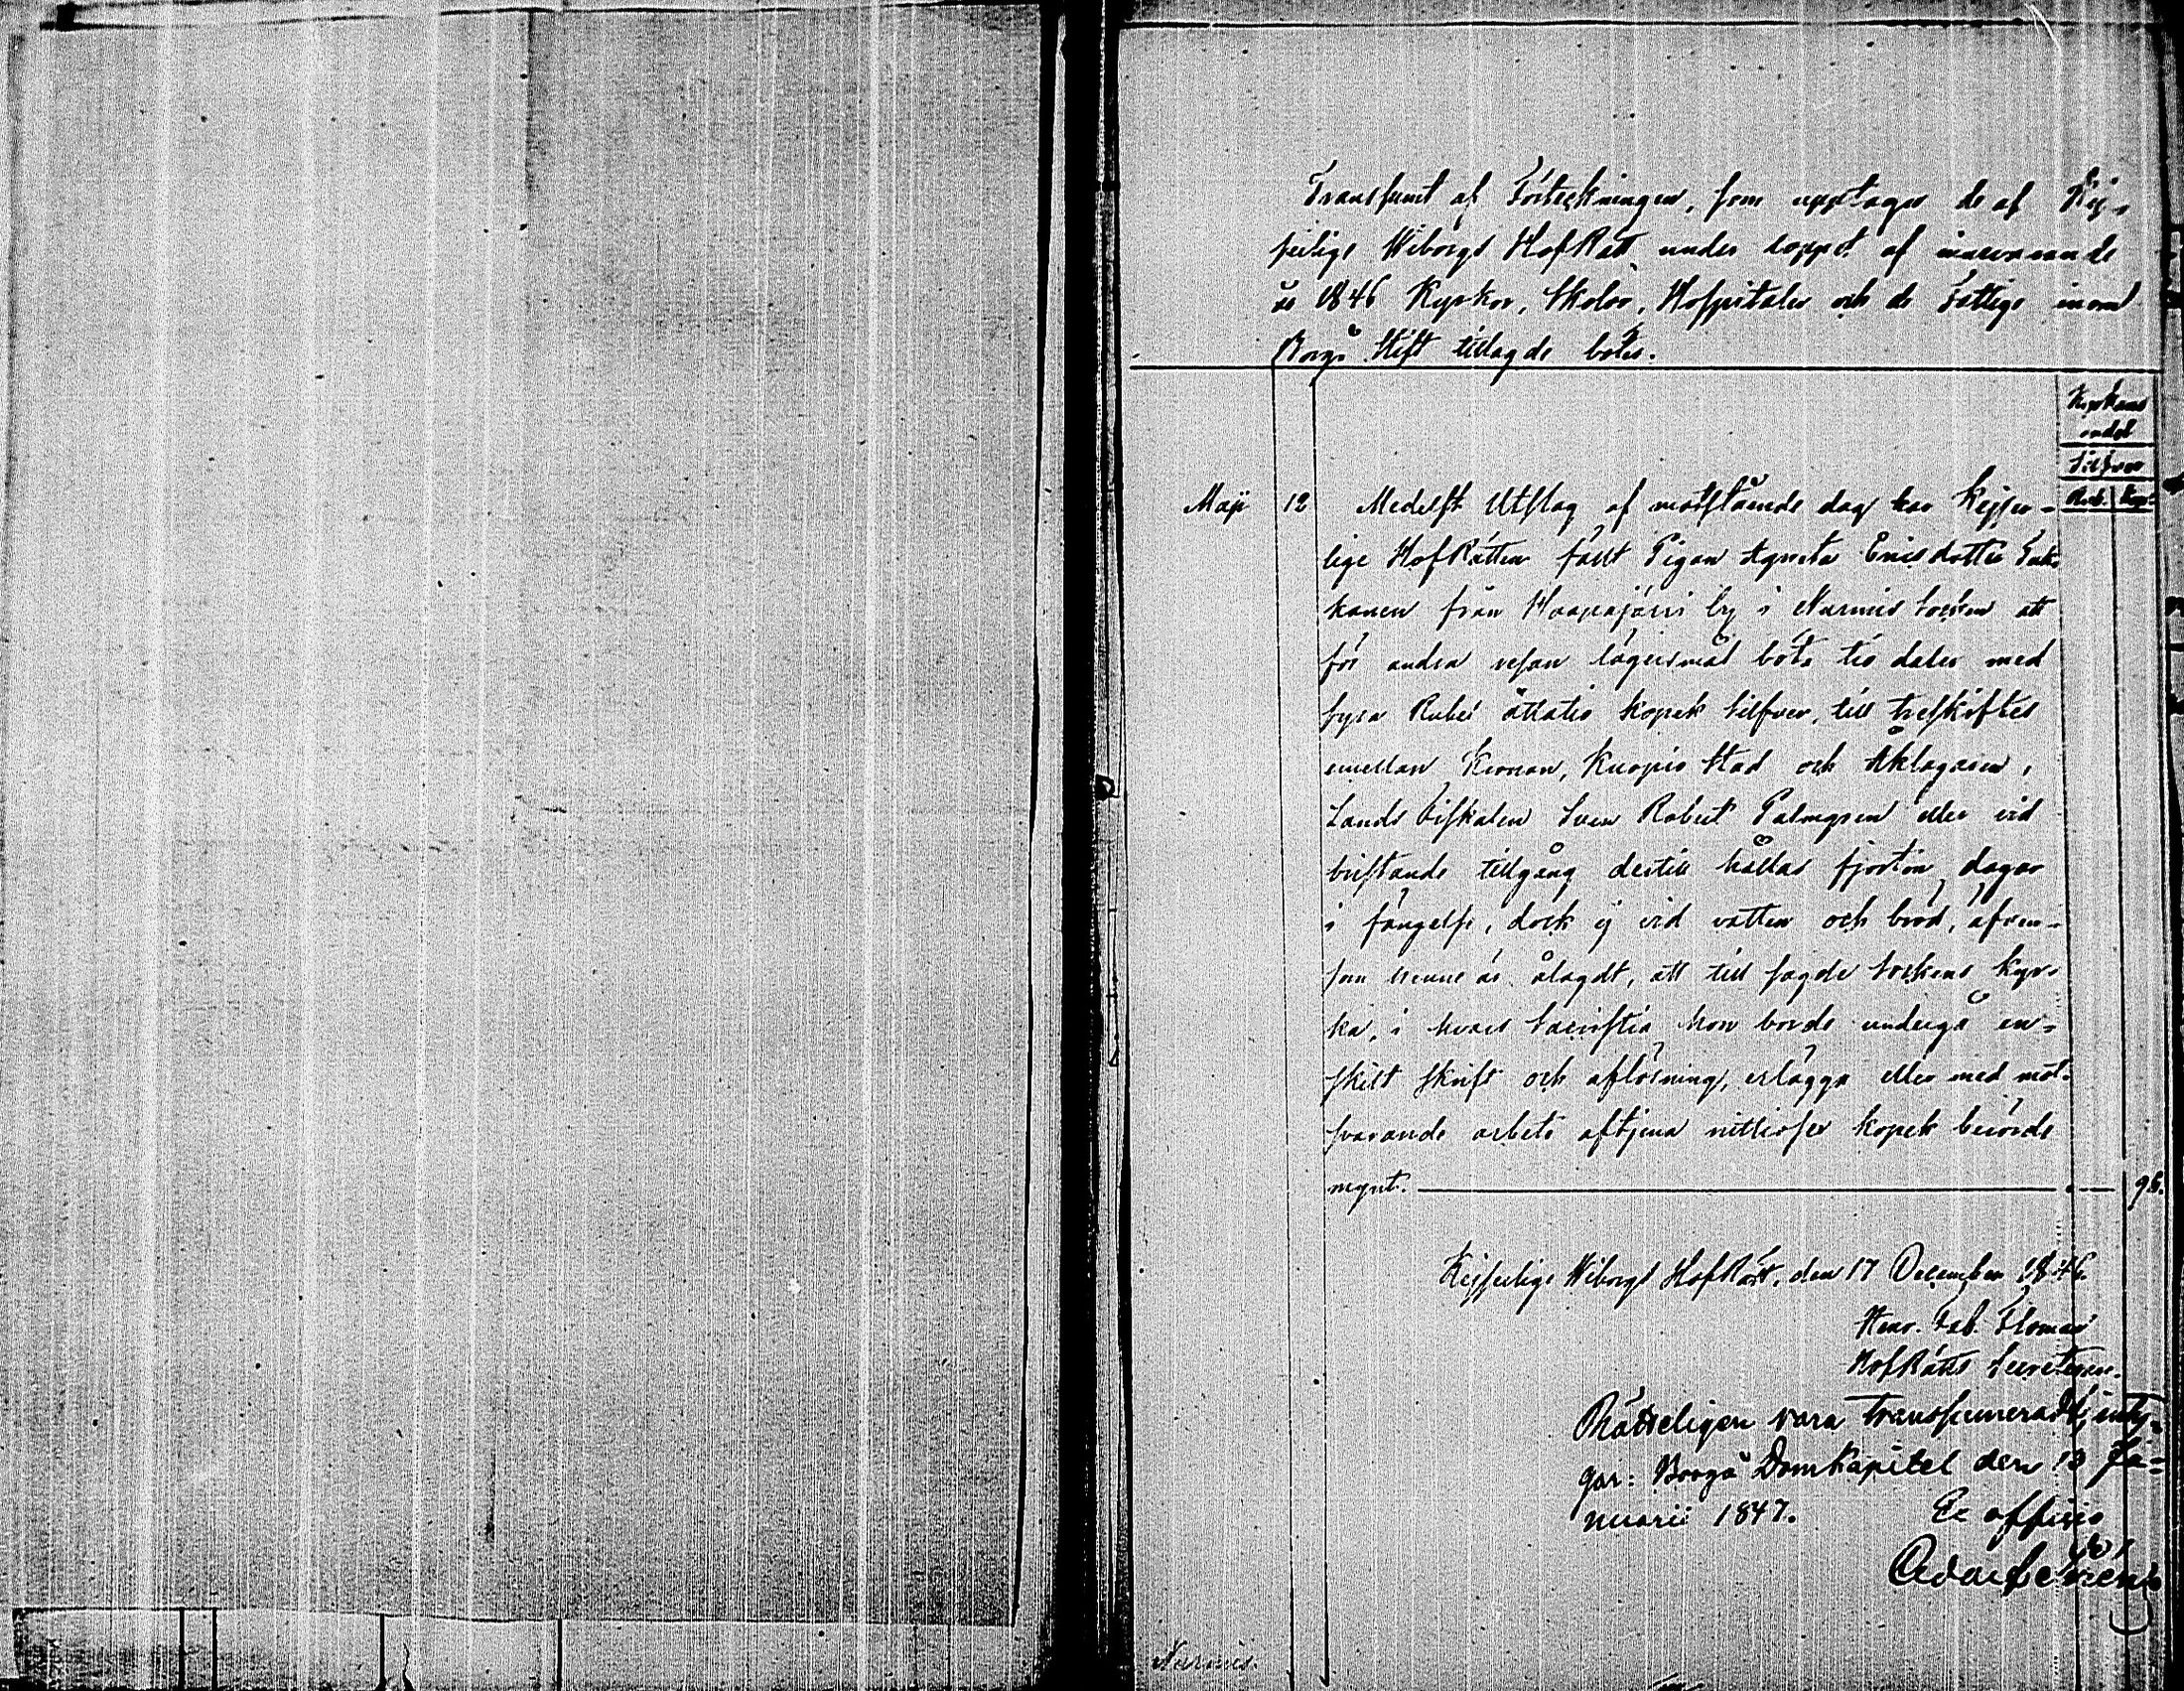 Transsumt af Förteckningen, som upptager de af Kej-
serlige Wiborgs HofRätt under loppet af innevarande
år 1846 Kyrkor, Skolor, Hospitaler och de Fattige inom
Borgå Stift tillagde böter.
Kyrkans
andel
Silfver
Rub. Kop.
Maji 12 Medelst Utslag af motstående dag har Kejser-
lige HofRätten fällt Pigan Agneta Ericsdotter
kanen från Haapajärvi by i Nurmis Socken att
för andra resan lägersmål böta tio daler med
fyra Rubel åttatio kopek silfver, till treskiftes
emellan Kronan, Kuopio Stad och Åklagaren,
Lands Fiskalen Sven Robert Palmgren eller vid
bristande tillgång dertill hållas fjorton dagar
i fängelse, dock ej vid vatten och bröd, äfven-
som henne är ålagdt, att till sagde Sockens kyr-
ka, i hvars Sacristia hon borde undergå en-
skilt skrift och aflösning, erlägga eller med mot-
svarande arbete aftjena nittiosex kopek berörde
mynt. 96.
Kejserlige Wiborgs HofRätt, den 17 December 1846.
Henr. Fab.
HofRätts Secreterare.
Rätteligen vara transsumeradt, inty-
gar: Borgå Domkapitel den 13 Ja-
nuarii 1847. Ex officio
Nurmis.